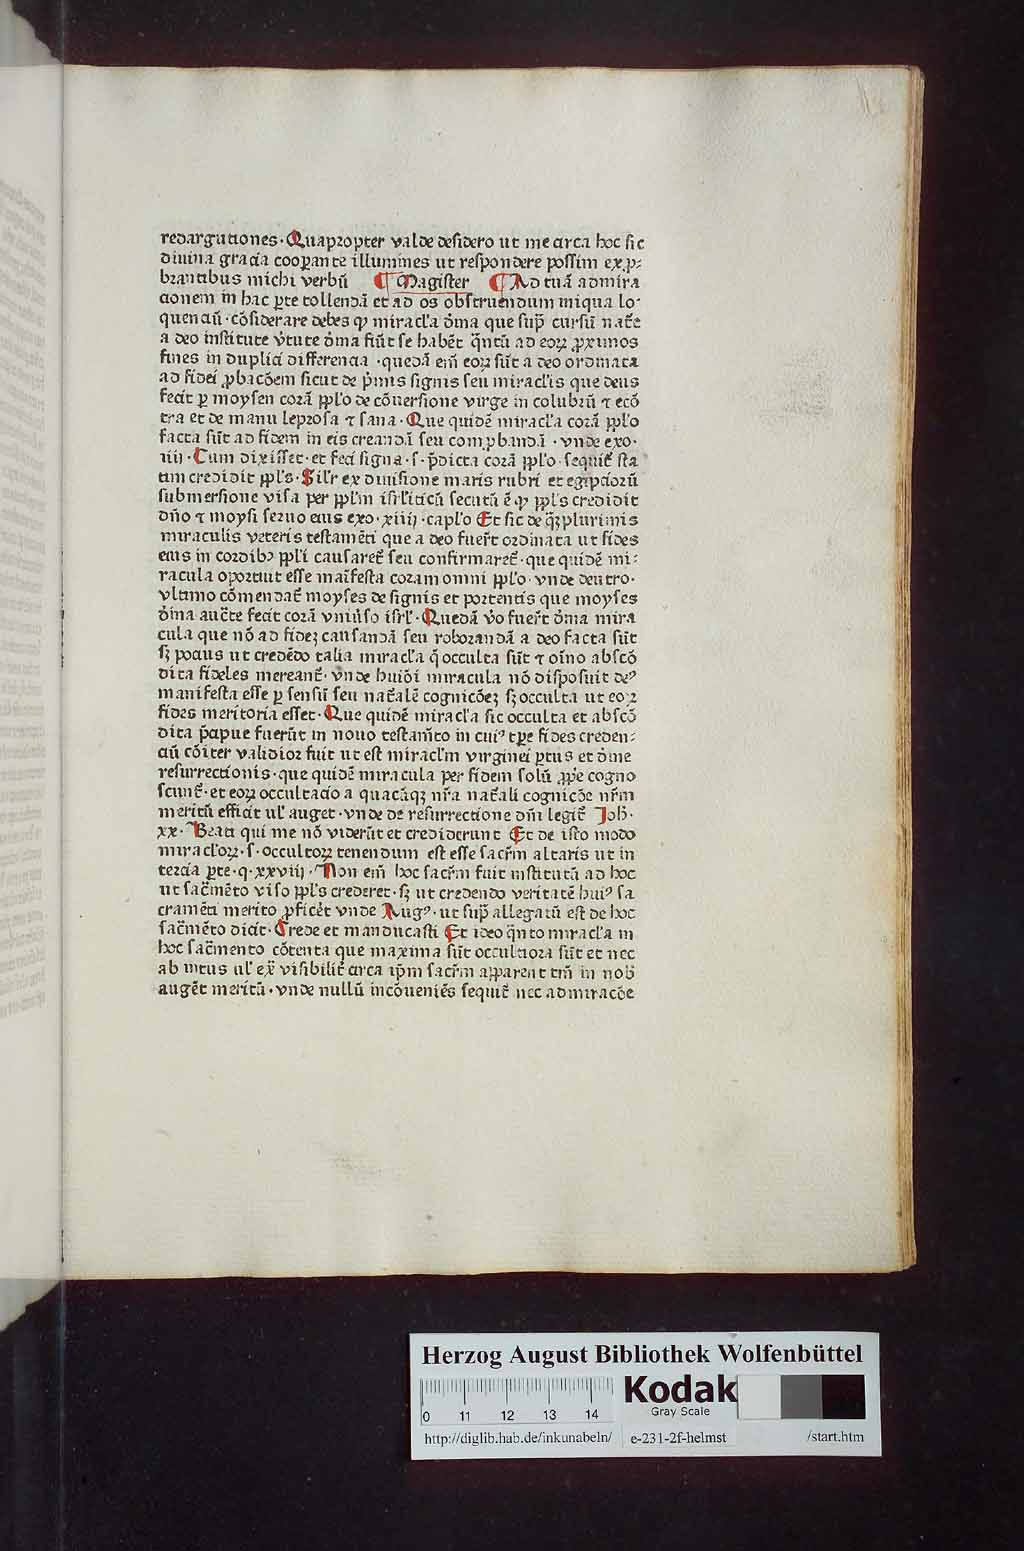 redargutiones · Quapropter valde desidero ut me circa hoc sic
diuina gracia cooꝑante illumines ut respondere possim exꝓ⸗
brantibus michi verbū ¶ Magister ¶ Ad tuā admira
cionem in hac ꝑte tollendā et ad os obstruendum iniqua lo⸗
quenciū · cōsiderare debes ꝙ miracl'a oīma que sup̄ cursū nat̄e
a deo institute v̄tute dīma fiūt se habēt q̄ntū ad eoꝝ ꝓximos
fines in duplici differencia · quedā em̄ eoꝝ sūt a deo ordinata
ad fidei ꝓbacōem sicut de p̄mis signis seu miracl'is que deus
fecit ꝑ moysen corā ppl'o de cōuersione virge in colubrū ⁊ ecō
tra et de manu leprosa ⁊ sana · Que quidē miracl'a corā ppl'o
facta sūt ad fidem in eis creandā seu comꝓbandā · vnde exo ·
iiij · Cum dixisset · et feci signa · s · p̄dicta corā ppl'o · sequit̄ sta
tim credidit ppl's · Sil'r ex diuisione maris rubri et egipciorū
submersione visa per ppl'm isrl'iticū secutū ē ꝙ ppl's credidit
dn̄o ⁊ moysi seruo eius exo · xiiij · capl'o Et sic de q̄ꝫplurimis
miraculis veteris testamēti que a deo fuer̄t ordinata ut fides
eius in cordibꝰ ppl'i causaret̄ seu confirmaret̄ · que quidē mi⸗
racula oportuit esse māifesta coram omni ppl'o · vnde deutro ·
vltimo cōmendat̄ moyses de signis et portentis que moyses
dīna auct̄e fecit corā vniūso isrl' · Quedā v̄o fuer̄t dīma mira
cula que nō ad fideꝫ causandā seu roborandā a deo facta sūt
sꝫ pocius ut credēdo talia miracl'a q̄ occulta sūt ⁊ oīno abscō
dita fideles mereant̄ · vnde huiōi miracula nō disposuit deꝰ
manifesta esse ꝑ sensū seu nat̄alē cognicōeꝫ sꝫ occulta ut eoꝝ
fides meritoria esset · Que quidē miracl'a sic occulta et abscō
dita p̄cipue fuerūt in nouo testam̄to in cuiꝰ tꝑe fides creden⸗
ciū cōiter validior fuit ut est miracl'm virginei ꝑtus et dīme
resurrectionis · que quidē miracula per fidem solū ꝓpͥe cogno
scunt̄ · et eoꝝ occultacio a quacūqꝫ nr̄a nat̄ali cognicōe nr̄m
meritū efficit ul' auget · vnde de resurrectione dn̄i legit̄ Joh̄ ·
xx · Beati qui me nō viderūt et crediderunt Et de isto modo
miracl'oꝝ · s · occultoꝝ tenendum est esse sacr̄m altaris ut in
tercia ꝑte · q · xxviij · Non em̄ hoc sacr̄m fuit institutū ad hoc
ut sac̄mēto viso ppl's crederet · sꝫ ut credendo veritatē huiꝰ sa
cramēti merito ꝓficēt vnde Augꝰ · ut sup̄ allegatū est de hoc
sac̄mēto dicit · Crede et manducasti Et ideo q̄nto miracl'a in
hoc sac̄mento cōtenta que maxima sūt occulciora sūt et nec
ab intus ul' ex̄ visibilit̄ circa ip̄m sacr̄m apparent tm̄ in nob̄
augēt meritū · vnde nullū incōueniēs sequit̄ nec admiracōe
Herzog August Bibliothek Wolfenbüttel
0 11 12 13 14
Kodak
Gray Scale
http://diglib.hab.de/inkunabeln/ e-231-2f-helmst /start.htm